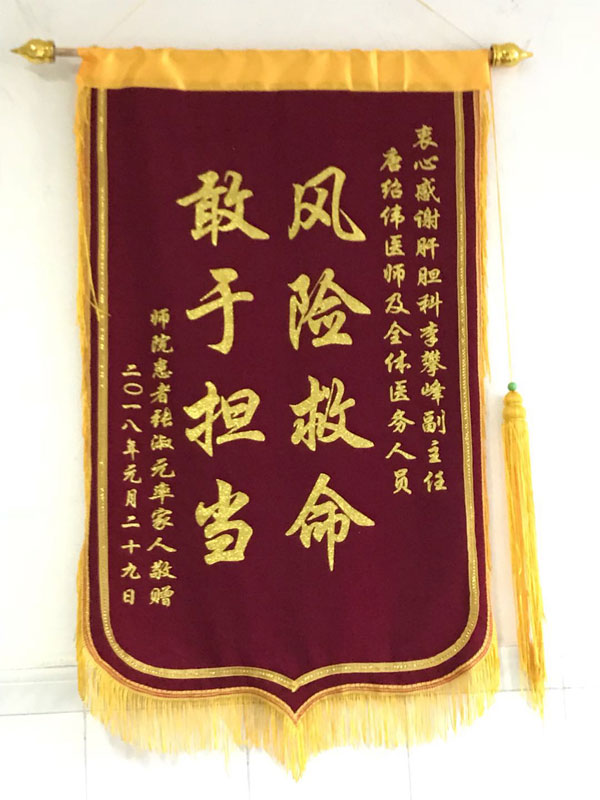 衷心感谢肝胆科李攀峰副主任
唐绍伟医师及全体医务人员
风险救命
敢于担当
师院患者张淑元率家人敬赠
二〇一八年元月二十九日